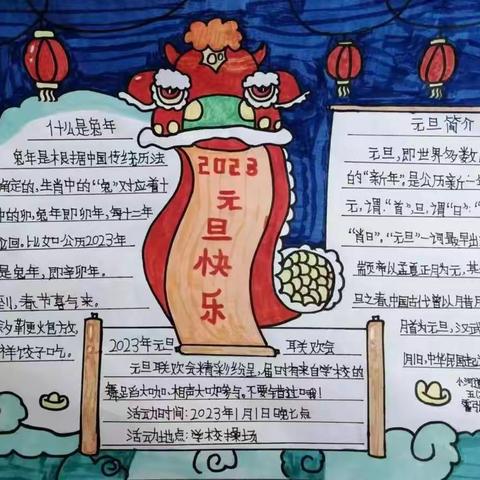 什么是兔年
兔年是根据中国传统历法
确定的,生肖中的“兔”对应着十
中的卯,兔年即卯年,每十二年
回.比如公历2023年
是兔年,即辛卯年。
到,春节喜与来。
样饺子吃。
2023
元旦快乐
元旦简介
元旦,即世界多数
的“新年”.是公历新一
元,谓“首”,旦,谓“日”;“
“首日”。“元旦”一词最早出
正月为元,其
旦之春.中国古代曾以
月首为元旦,汉武
中华民国
2023年元旦 联欢会
元旦联欢会精彩纷呈,届时有来自学校的
舞蹈大咖.相声大咖参与。不要错过哦!
活动时间:2023年1月1日晚七点
活动地点:学校操场